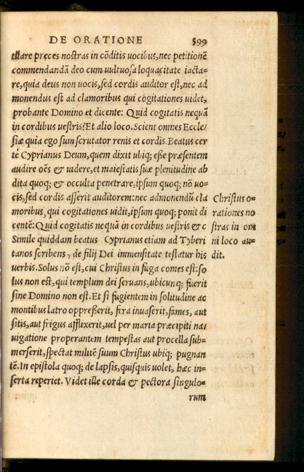 DE ORATIONE 599
tilare preces nostras in cōditis uocibus, nec petitionē
commendandā deo cum uultuosa loquacitate iacta=
re, quia deus non uocis, sed cordis auditor est, nec ad
monendus est ad clamoribus qui cogitationes uidet,
probante Domino et dicente: Quid cogitatis nequā
in cordibus uestris? Et alio loco. Scient omnes Eccle/
siæ quia ego sum scrutator renis et cordis. Beatus cer
tè Cyprianus Deum, quem dixit ubiq; esse præsentem
audire oēs & uidere, et maiestatis suæ plenitudine ab
dita quoq; & occulta penetrare, ipsum quoq; nō uo=
cis, sed cordis asserit auditorem: nec admonendū cla
moribus, qui cogitationes uidit, ipsum quoq; ponit di
centē: Quid cogitatis nequā in cordibus uestris & c
Simile quiddam beatus Cyprianus etiam ad Tyberi
tanos scribens, de filij Dei immensitate testatur his
uerbis. Solus nō est, cui Christus in fuga comes est: so
lus non est, qui templum dei seruans, ubicunq; fuerit
sine Domino non est. Et si fugientem in solitudine ac
montibus latro oppresserit, fera inuaserit, fames, aut
sitis, aut frigus afflixerit, uel per maria præcipiti na=
uigatione properantem tempestas aut procella sub=
merserit, spectat militē suum Christus ubiq; pugnan
tē. In epistola quoq; de lapsis, quisquis uolet, hæc in=
serta reperiet. Videt ille corda & pectora singulo=
rum
Christus o=
rationes no
stras in om
ni loco au=
dit.